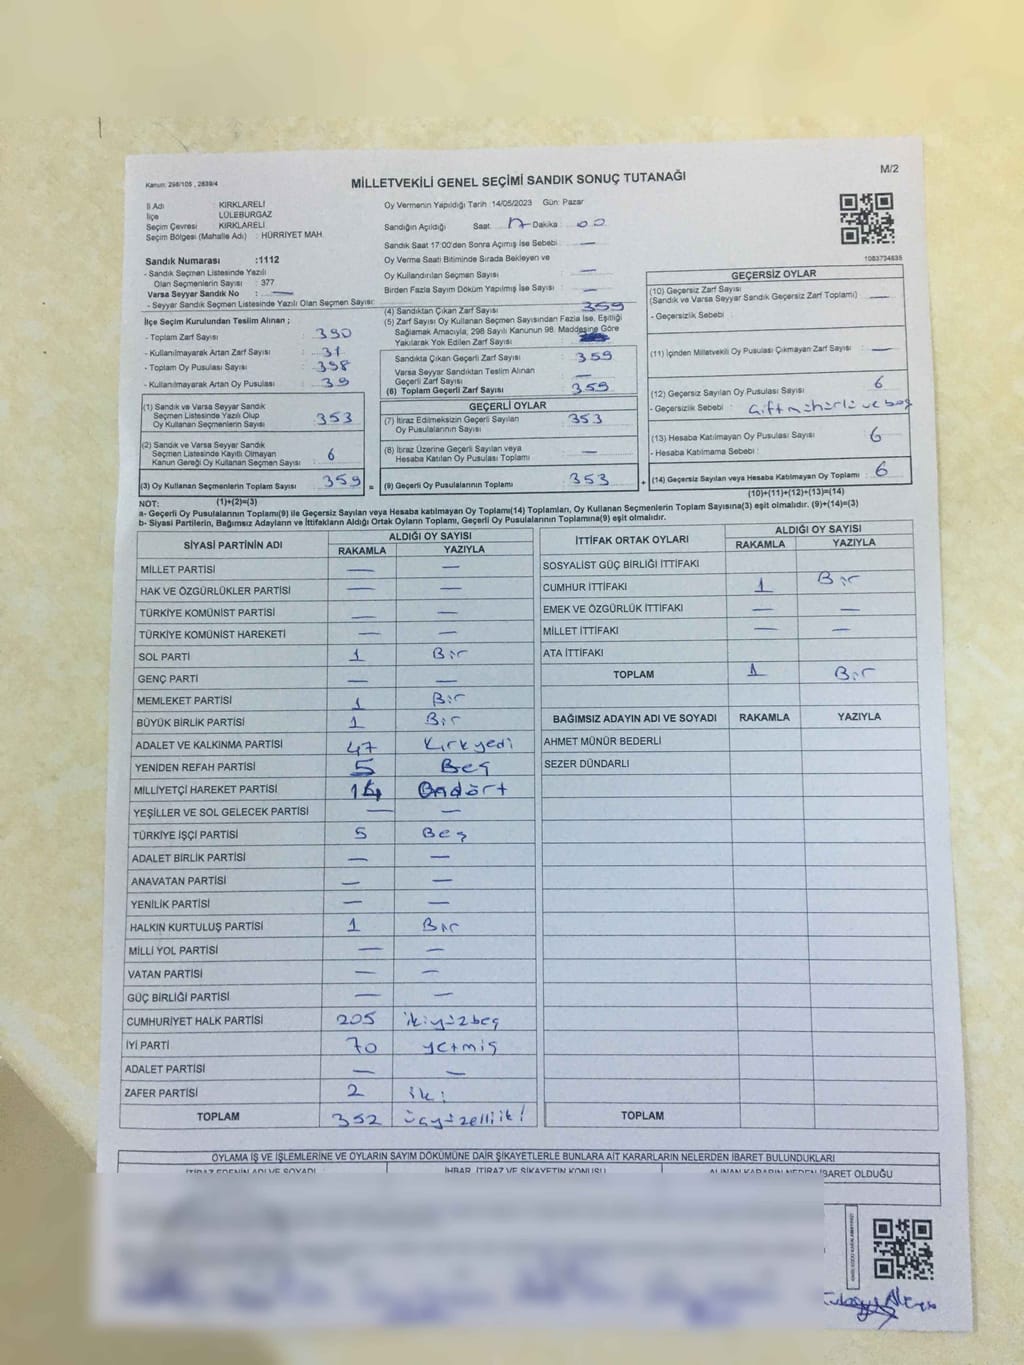 M/2
Kanun: 298/105 , 2839/4
MİLLETVEKİLİ GENEL SEÇİMİ SANDIK SONUÇ TUTANAĞI
İl Adı : KIRKLARELİ
İlçe : LÜLEBURGAZ
Seçim Çevresi : KIRKLARELİ
Seçim Bölgesi (Mahalle Adı) : HÜRRİYET MAH.
Sandık Numarası :1112
- Sandık Seçmen Listesinde Yazılı
Olan Seçmenlerin Sayısı : 377
Varsa Seyyar Sandık No : —
- Seyyar Sandık Seçmen Listesinde Yazılı Olan Seçmen Sayısı:
Oy Vermenin Yapıldığı Tarih :14/05/2023 Gün: Pazar
Sandığın Açıldığı Saat: 17 Dakika : 00
Sandık Saat 17:00'den Sonra Açımış İse Sebebi : —
Oy Verme Saati Bitiminde Sırada Bekleyen ve
Oy Kullandırılan Seçmen Sayısı : —
Birden Fazla Sayım Döküm Yapılmış İse Sayısı : —
1083734835
İlçe Seçim Kurulundan Teslim Alınan ;
- Toplam Zarf Sayısı : 390
- Kullanılmayarak Artan Zarf Sayısı : 31
- Toplam Oy Pusulası Sayısı : 398
- Kullanılmayarak Artan Oy Pusulası : 39
(1) Sandık ve Varsa Seyyar Sandık
Seçmen Listesinde Yazılı Olup
Oy Kullanan Seçmenlerin Sayısı : 353
(2) Sandık ve Varsa Seyyar Sandık
Seçmen Listesinde Kayıtlı Olmayan
Kanun Gereği Oy Kullanan Seçmen Sayısı : 6
(3) Oy Kullanan Seçmenlerin Toplam Sayısı : 359 =
(1)+(2)=(3)
(4) Sandıktan Çıkan Zarf Sayısı : 359
(5) Zarf Sayısı Oy Kullanan Seçmen Sayısından Fazla İse, Eşitliği
Sağlamak Amacıyla, 298 Sayılı Kanunun 98. Maddesine Göre
Yakılarak Yok Edilen Zarf Sayısı :
Sandıkta Çıkan Geçerli Zarf Sayısı : 359
Varsa Seyyar Sandıktan Teslim Alınan
Geçerli Zarf Sayısı : —
(6) Toplam Geçerli Zarf Sayısı : 359
GEÇERLİ OYLAR
(7) İtiraz Edilmeksizin Geçerli Sayılan
Oy Pusulalarının Sayısı : 353
(8) İtiraz Üzerine Geçerli Sayılan veya
Hesaba Katılan Oy Pusulası Toplamı : —
(9) Geçerli Oy Pusulalarının Toplamı : 353 +
GEÇERSİZ OYLAR
(10) Geçersiz Zarf Sayısı
(Sandık ve Varsa Seyyar Sandık Geçersiz Zarf Toplamı) : —
- Geçersizlik Sebebi :
(11) İçinden Milletvekili Oy Pusulası Çıkmayan Zarf Sayısı : —
(12) Geçersiz Sayılan Oy Pusulası Sayısı : 6
- Geçersizlik Sebebi : Çift mühürlü ve boş
(13) Hesaba Katılmayan Oy Pusulası Sayısı : 6
- Hesaba Katılmama Sebebi :
(14) Geçersiz Sayılan veya Hesaba Katılmayan Oy Toplamı : 6
(10)+(11)+(12)+(13)=(14)
NOT:
a- Geçerli Oy Pusulalarının Toplamı(9) ile Geçersiz Sayılan veya Hesaba katılmayan Oy Toplamı(14) Toplamları, Oy Kullanan Seçmenlerin Toplam Sayısına(3) eşit olmalıdır. (9)+(14)=(3)
b- Siyasi Partilerin, Bağımsız Adayların ve İttifakların Aldığı Ortak Oyların Toplamı, Geçerli Oy Pusulalarının Toplamına(9) eşit olmalıdır.
SİYASİ PARTİNİN ADI ALDIĞI OY SAYISI
RAKAMLA YAZIYLA
MİLLET PARTİSİ — —
HAK VE ÖZGÜRLÜKLER PARTİSİ — —
TÜRKİYE KOMÜNİST PARTİSİ — —
TÜRKİYE KOMÜNİST HAREKETİ — —
SOL PARTİ 1 Bir
GENÇ PARTİ — —
MEMLEKET PARTİSİ 1 Bir
BÜYÜK BİRLİK PARTİSİ 1 Bir
ADALET VE KALKINMA PARTİSİ 47 Kırkyedi
YENİDEN REFAH PARTİSİ 5 Beş
MİLLİYETÇİ HAREKET PARTİSİ 14 Ondört
YEŞİLLER VE SOL GELECEK PARTİSİ — —
TÜRKİYE İŞÇİ PARTİSİ 5 Beş
ADALET BİRLİK PARTİSİ — —
ANAVATAN PARTİSİ — —
YENİLİK PARTİSİ — —
HALKIN KURTULUŞ PARTİSİ 1 Bir
MİLLİ YOL PARTİSİ — —
VATAN PARTİSİ — —
GÜÇ BİRLİĞİ PARTİSİ — —
CUMHURİYET HALK PARTİSİ 205 ikiyüzbeş
İYİ PARTİ 70 yetmiş
ADALET PARTİSİ — —
ZAFER PARTİSİ 2 iki
TOPLAM 352 üçyüzelliiki
İTTİFAK ORTAK OYLARI ALDIĞI OY SAYISI
RAKAMLA YAZIYLA
SOSYALİST GÜÇ BİRLİĞİ İTTİFAKI
CUMHUR İTTİFAKI 1 Bir
EMEK VE ÖZGÜRLÜK İTTİFAKI — —
MİLLET İTTİFAKI — —
ATA İTTİFAKI
TOPLAM 1 Bir
BAĞIMSIZ ADAYIN ADI VE SOYADI RAKAMLA YAZIYLA
AHMET MÜNÜR BEDERLİ
SEZER DÜNDARLI
TOPLAM
OYLAMA İŞ VE İŞLEMLERİNE VE OYLARIN SAYIM DÖKÜMÜNE DAİR ŞİKAYETLERLE BUNLARA AİT KARARLARIN NELERDEN İBARET BULUNDUKLARI
İTİRAZ EDENİN ADI VE SOYADI İHBAR, İTİRAZ VE ŞİKAYETİN KONUSU ALINAN KARARIN NEDEN İBARET OLDUĞU